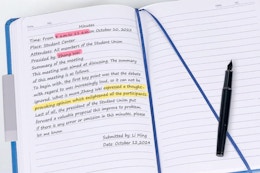 Minutes
Time: From 9 a.m. to 11 a.m. on October 10, 2014
Place: Student Center
Attendees: All members of the Student Union
Presided by: Zhang Wei
Summary of the meeting
This meeting was aimed at discussing. The summary
of this meeting is as follows.
To begin with, the first key point was that the debate
was not as wide
ignored. What's more, Zhang Wei expressed a thought-
provoking opinion which enlightened all the participants.
Last of all, the president of the Student Union put
forward a valuable proposal this improve to problem.
If there is any error or omission in the minutes, please
let me know.
Submitted by Li Ming
Date: October 12, 2014